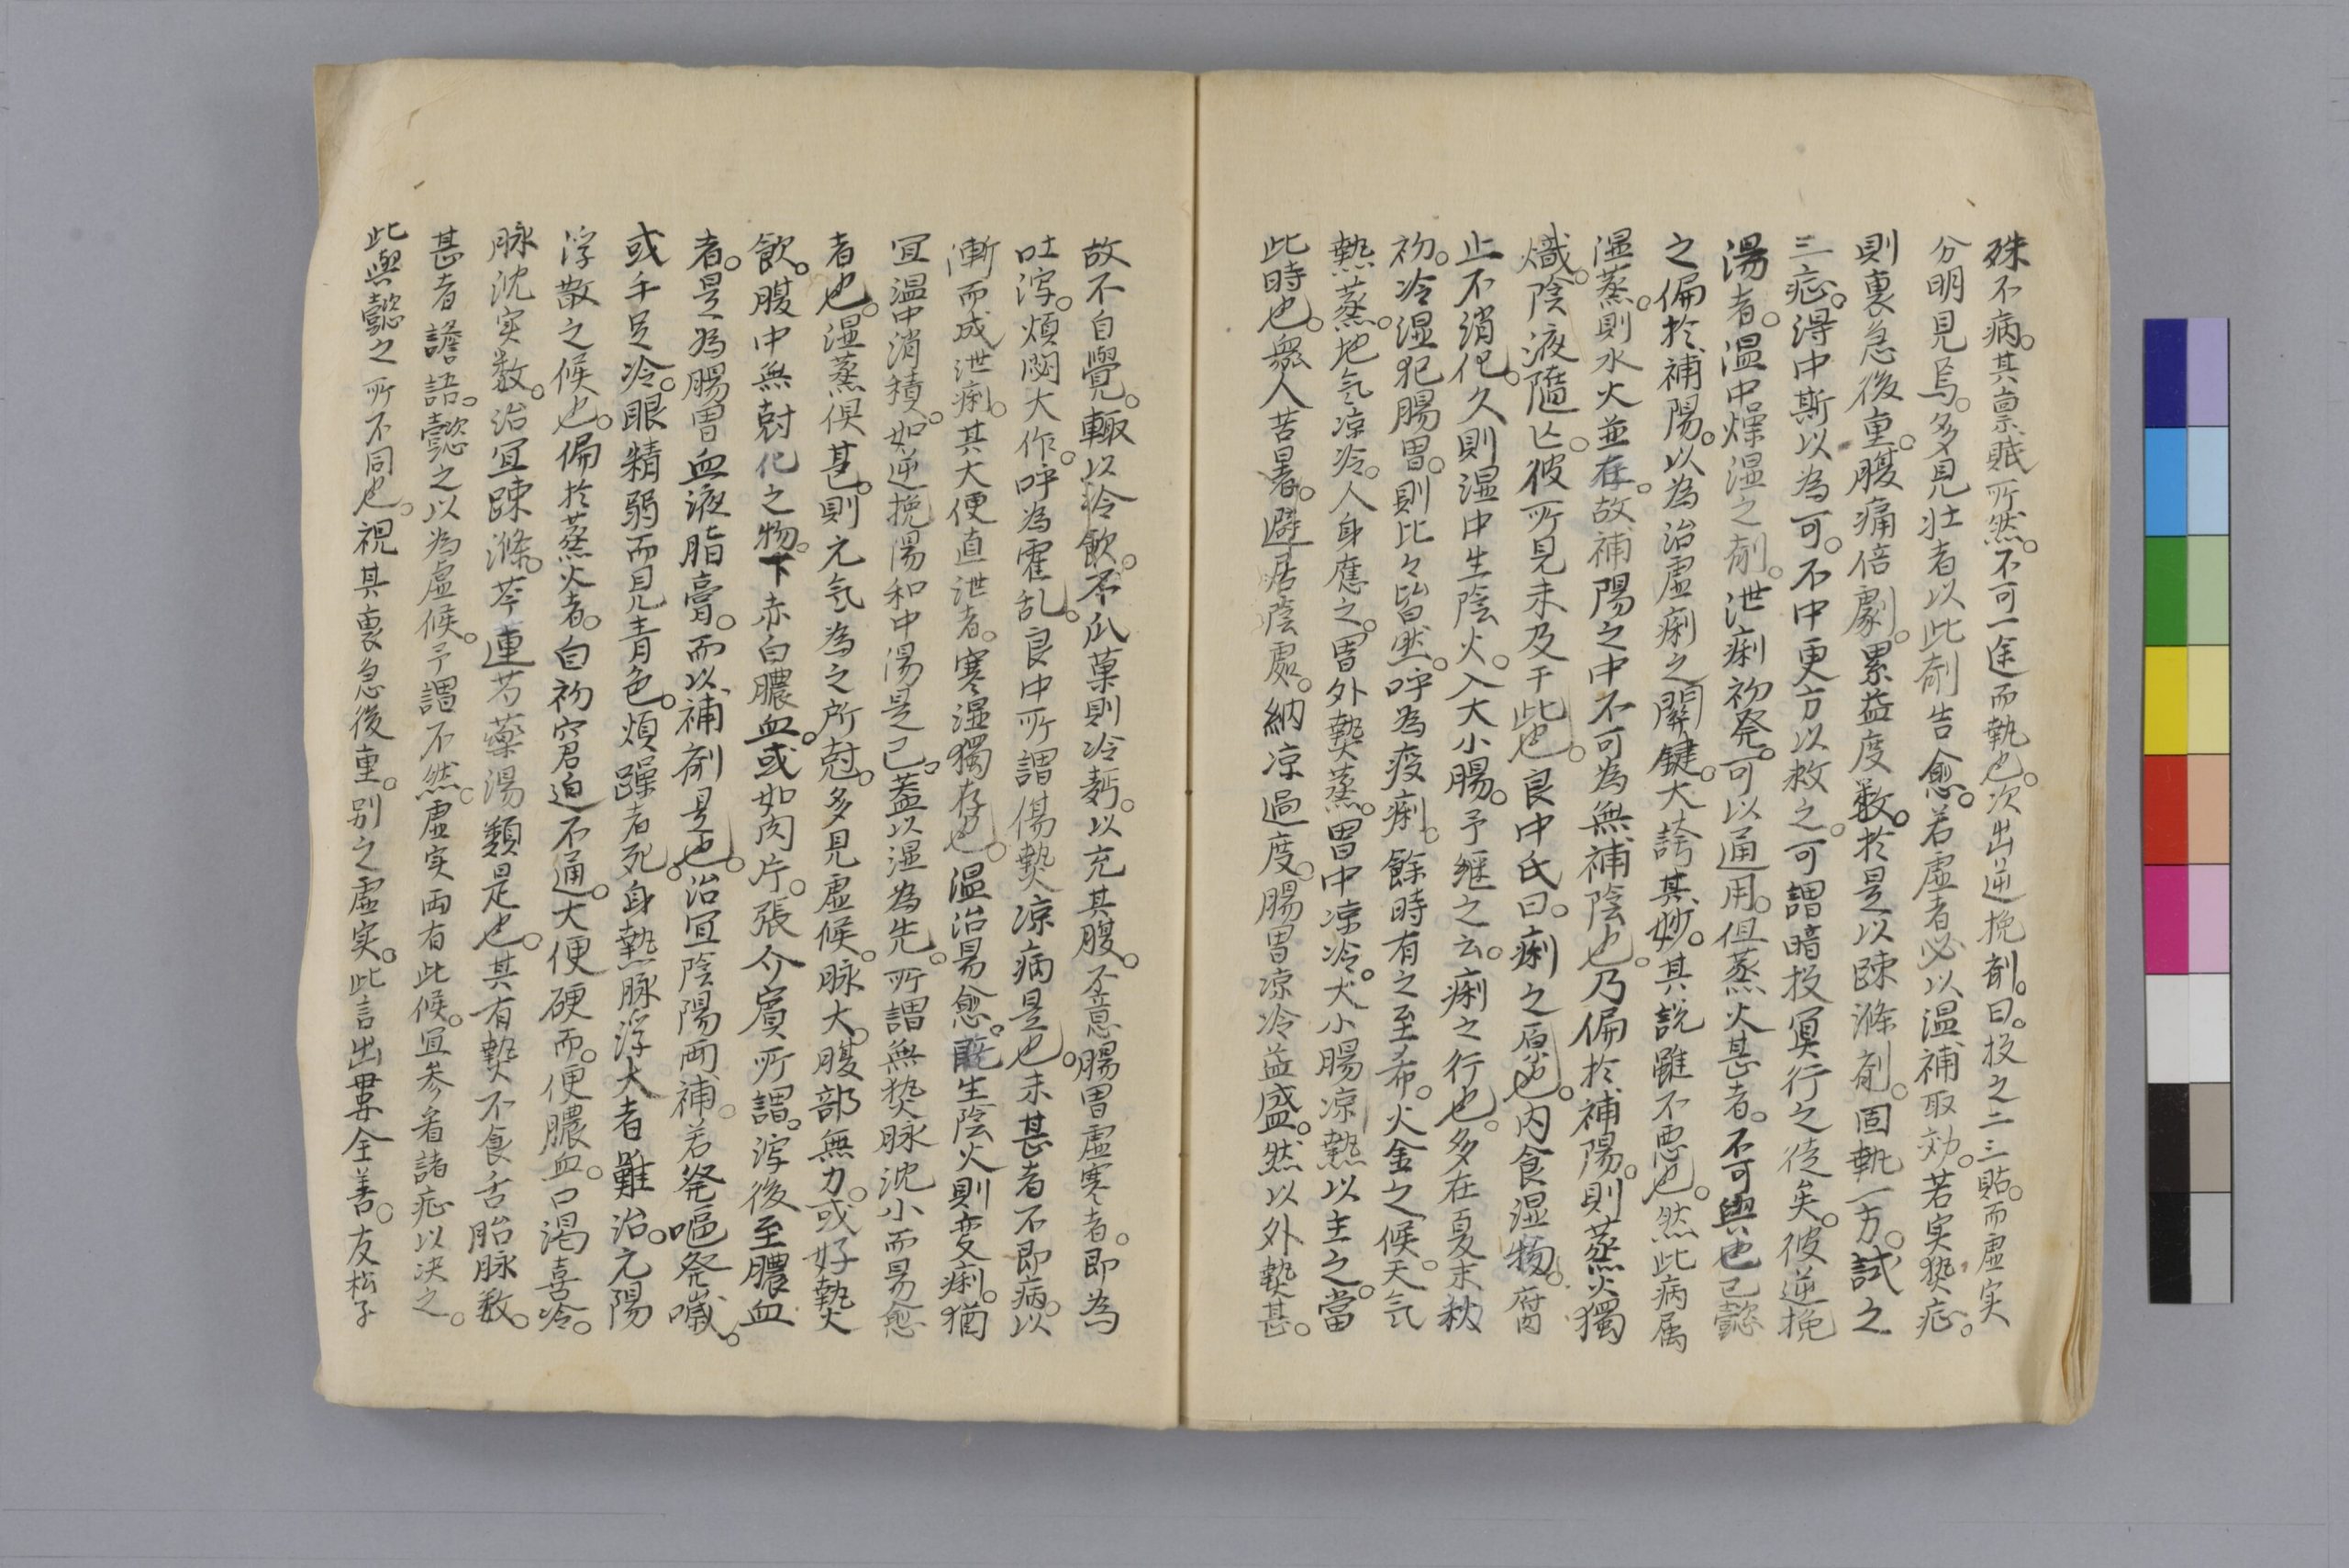 殊不病。其禀賦所然。不可一途而執也。次出逆挽剤。曰。投之二三貼。而虚実
分明見焉。多見壮者以此剤告愈。若虚者必以温補取効。若実熱症。
則裏急後重。腹痛倍劇。累益度数。於是以疎滌剤。固執一方。試之
三症。得中斯以為可。不中更方以救之。可謂暗投冥行之徒矣。彼逆挽
湯者。温中燥湿之剤。泄痢初発。可以通用。但蒸火甚者。不可與也。已懿
之偏於補陽。以為治虚痢之関鍵。大誇其妙。其説雖不悪也。然此病属
湿蒸。則水火並存。故補陽之中不可為無補陰也。乃偏於補陽。則蒸火獨
熾。陰液随亡。彼所見未及于此也。良中氏曰。痢之原也。内食湿物。腐肉
止不消化。久則湿中生陰火。入大小腸。予継之云。痢之行也。多在夏末秋
初。冷湿犯腸胃。則比々皆然。呼為疫痢。餘時有之至希。火金之候。天気
熱蒸。地気凉冷。人身應之。胃外熱蒸。胃中凉冷。大小腸凉熱以主之。當
此時也。衆人苦暑。避居陰處。納凉過度。腸胃凉冷益盛。然以外熱甚。
故不自覺。輙以冷飲。不瓜菓則冷麪。以充其腹。不意腸胃虚寒者。即為
吐瀉。煩悶大作。呼為霍乱。良中所謂傷熱凉病是也。未甚者不即病。以
漸而成泄痢。其大便直泄者。寒湿獨存也。温治易愈。既生陰火則変痢。猶
宜温中消積。如逆挽湯和中湯是已。蓋以湿為先。所謂無熱脉沈小而易愈
者也。湿蒸倶甚。則元気為之所尅。多見虚候。脉大。腹部無力。或好熱
飲。腹中無尅化之物。下赤白膿血。或如肉片。張介賓所謂。瀉後至膿血
者。是為腸胃血液脂膏。而以補剤是也。治宜陰陽両補。若発嘔発噦。
或手足冷。眼精弱而見青色。煩躁者死。身熱脉浮大者難治。元陽
浮散之候也。偏於蒸火者。自初窘迫不通。大便硬而。便膿血。口渇喜冷。
脉沈実数。治宜疎滌。芩連芍薬湯類是也。其有熱不食舌胎脉数。
甚者譫語。懿之以為虚候。予謂不然。虚実両有此候。宜参看諸症以决之。
此與懿之所不同也。視其裏急後重。別之虚実。此言出畢全善。友松子